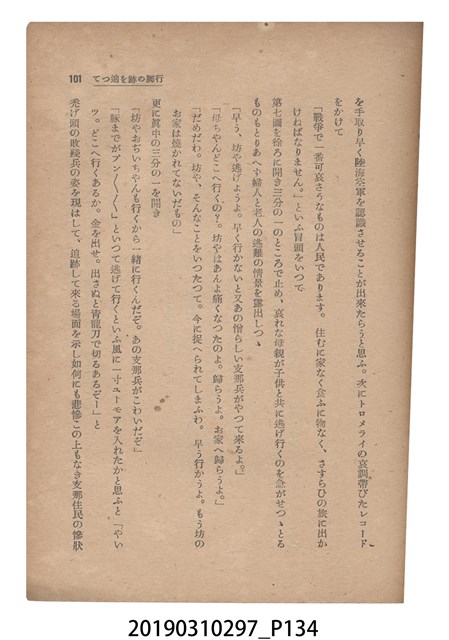 行脚の跡を追つて
101
を手取り早く陸海空軍を認識させることが出来たらうと思ふ。次にトロメライの哀調帯びたレコード
をかけて
「戰爭で一番可哀さうなものは人民であります。住むに家なく食ふに物なく、さすらひの旅に出か
けねばなりません。」といふ冒頭をいつて
第七圖を徐ろに開き三分の一のところで止め、哀れな母親が子供と共に逃げ行くのを急がせつゝとる
ものもとりあへず婦人と老人の逃難の情景を露出しつゝ
「早う、坊や逃げようよ。早く行かないと又あの憎らしい支那兵がやつて來るよ。」
「母ちやんどこへ行くの?。坊やはあんよ痛くなつたのよ。歸らうよ。お家へ歸らうよ。」
「だめだわ。坊や、そんなことをいつたつて。今に捉へられてしまふわ。早う行かうよ。もう坊の
お家は燒かれてないだもの」
更に眞中の三分の一を開き
「坊やおぢいちやんも行くから一緒に行くんだぞ。あの支那兵がこわいだぞ」
「豚までがブン〱〱」といつて逃げて行くといふ風に一寸ユーモアを入れたかと思ふと「やい
ツ。どこへ行くあるか。金を出せ。出さぬと青龍刀で切るあるぞー」と
禿げ頭の敗殘兵の姿を現はして、追跡して來る場面を示し如何にも悲慘この上もなき支那住民の慘狀
20190310297_P134